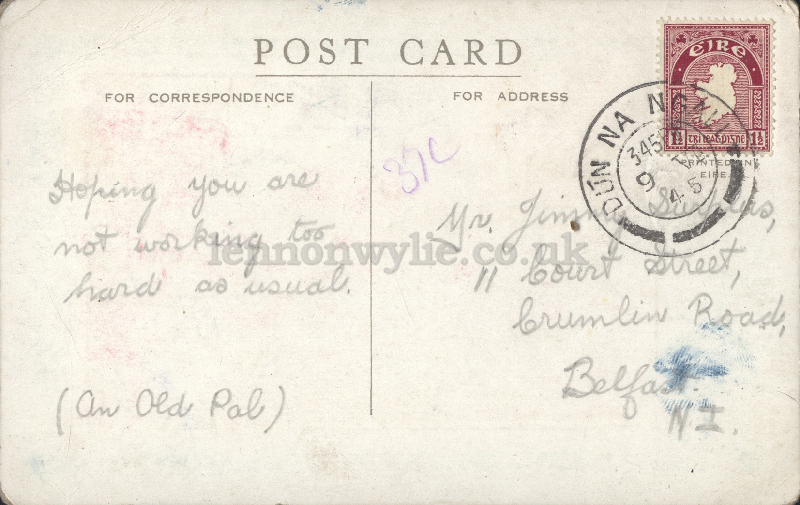 POST CARD
FOR CORRESPONDENCE
FOR ADDRESS
EIRE
1½ 1½
PRINTED IN
EIRE
DÚN NA
345
9
4 5
37c
Hoping you are
not working too
hard as usual.
(An Old Pal)
Mr. Jimmy
11 Court Street,
Crumlin Road,
Belfast.
N.I.
lennonwylie.co.uk